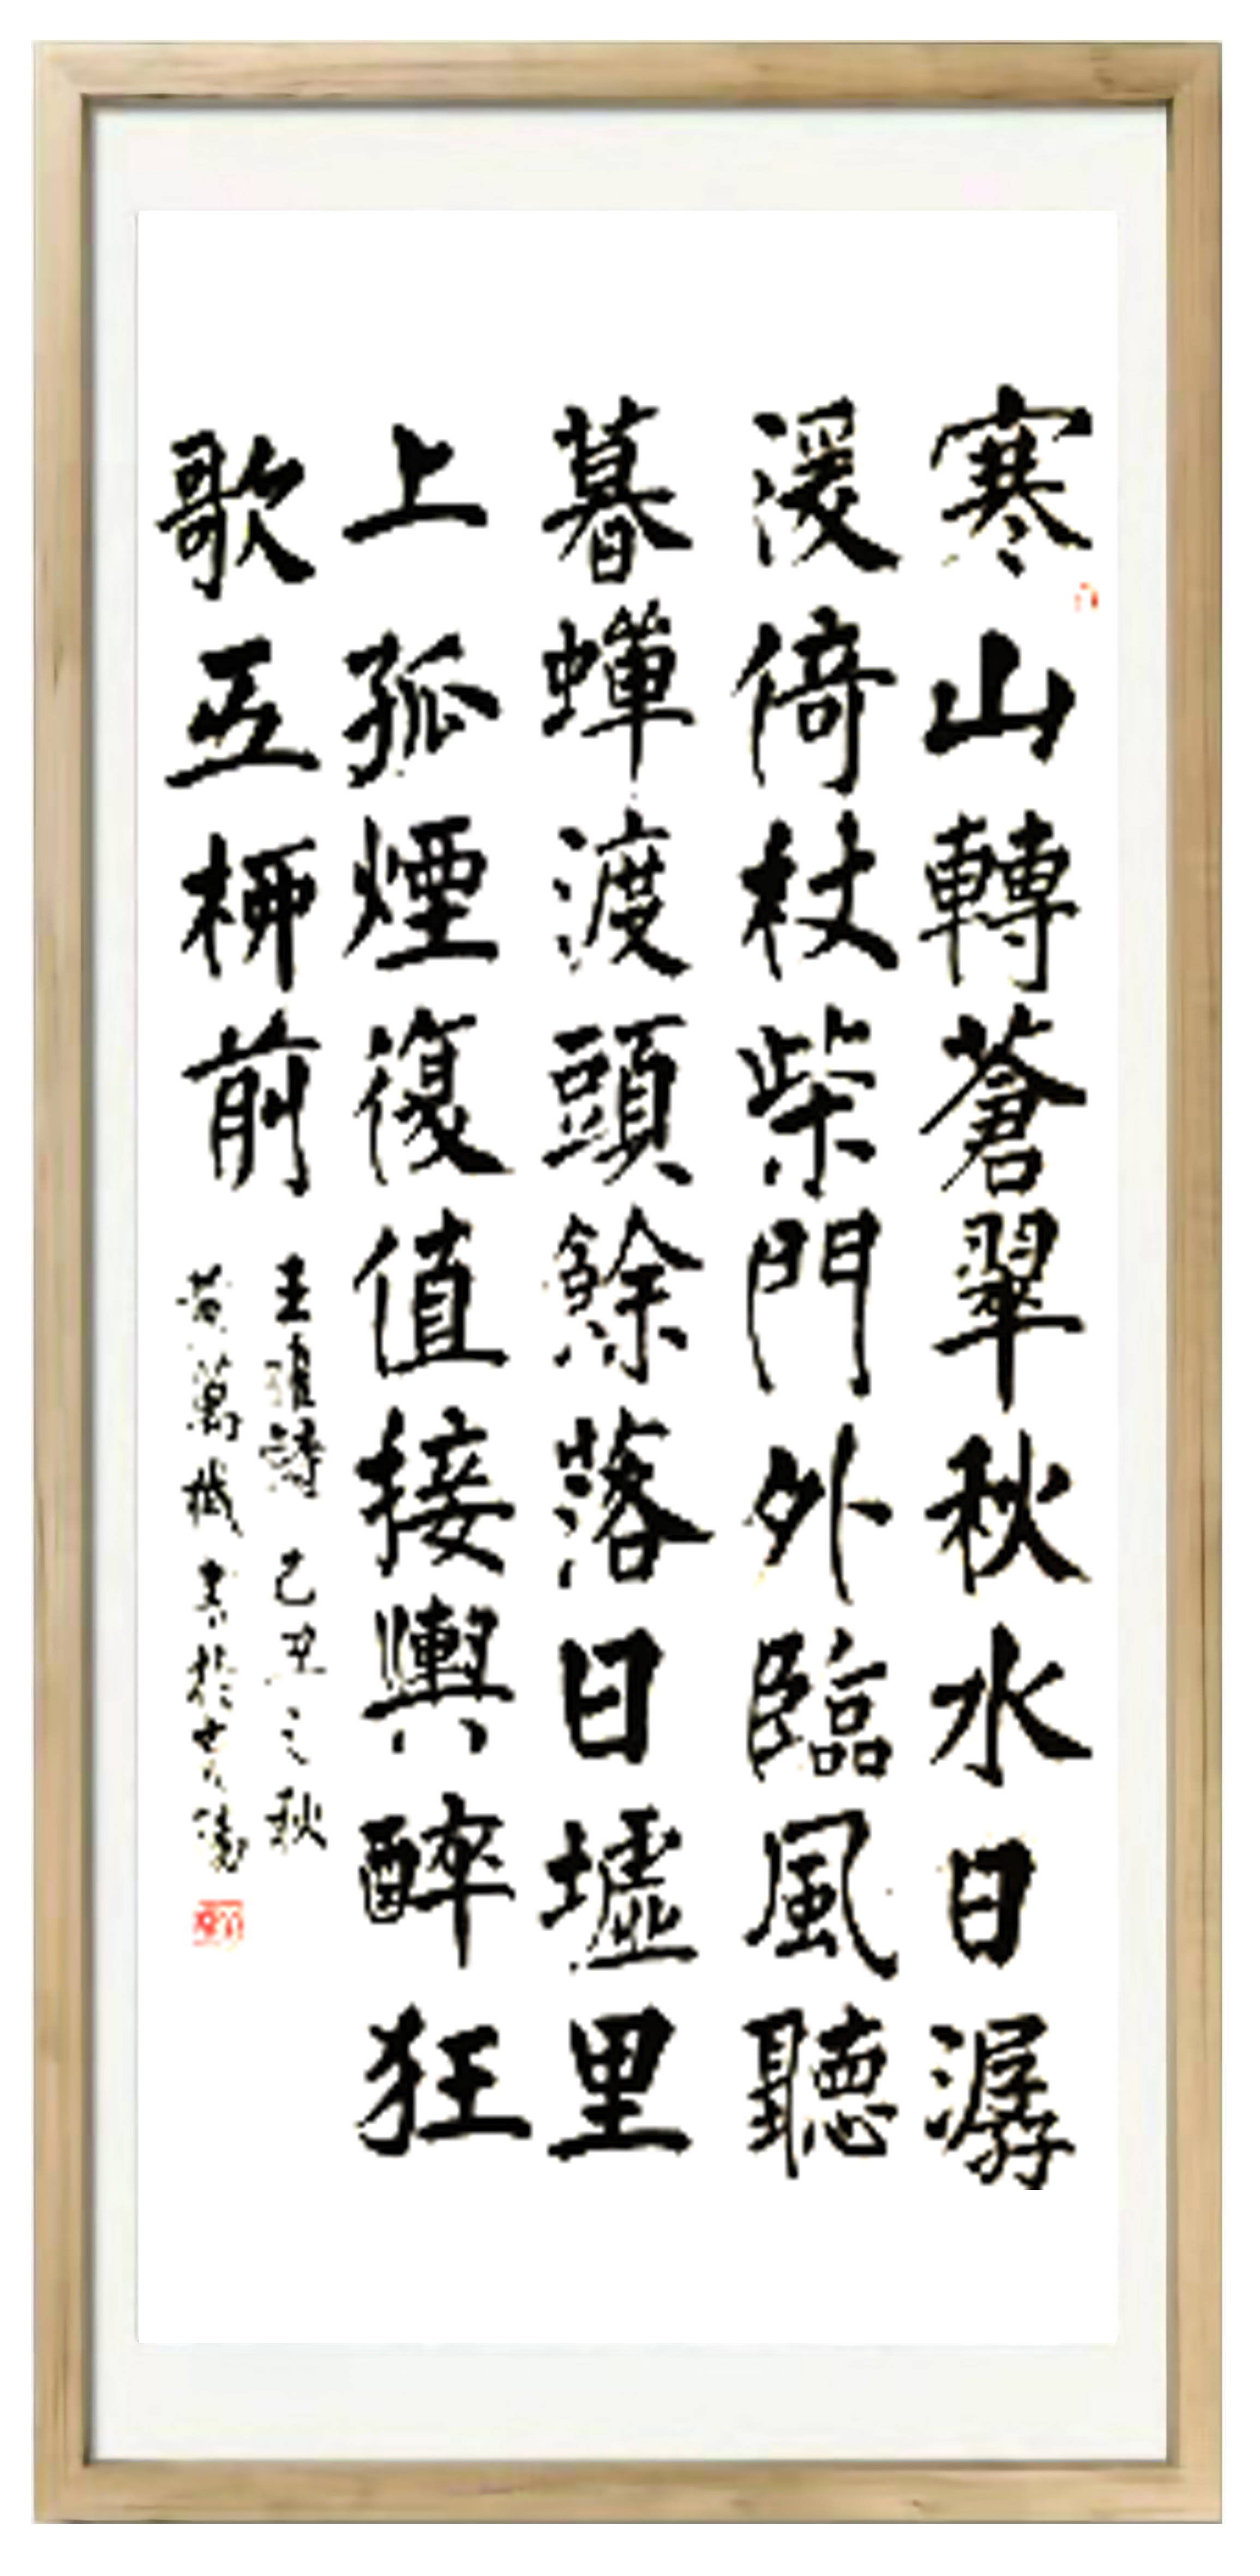 寒山轉蒼翠秋水日潺
湲倚杖柴門外臨風聽
暮蟬渡頭餘落日墟里
上孤煙復值接輿醉狂
歌五柳前
王維詩 己丑之秋
黃萬書於